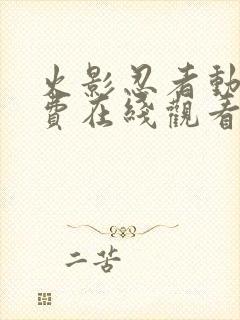 火影忍者動
費在綫觀看
二苦